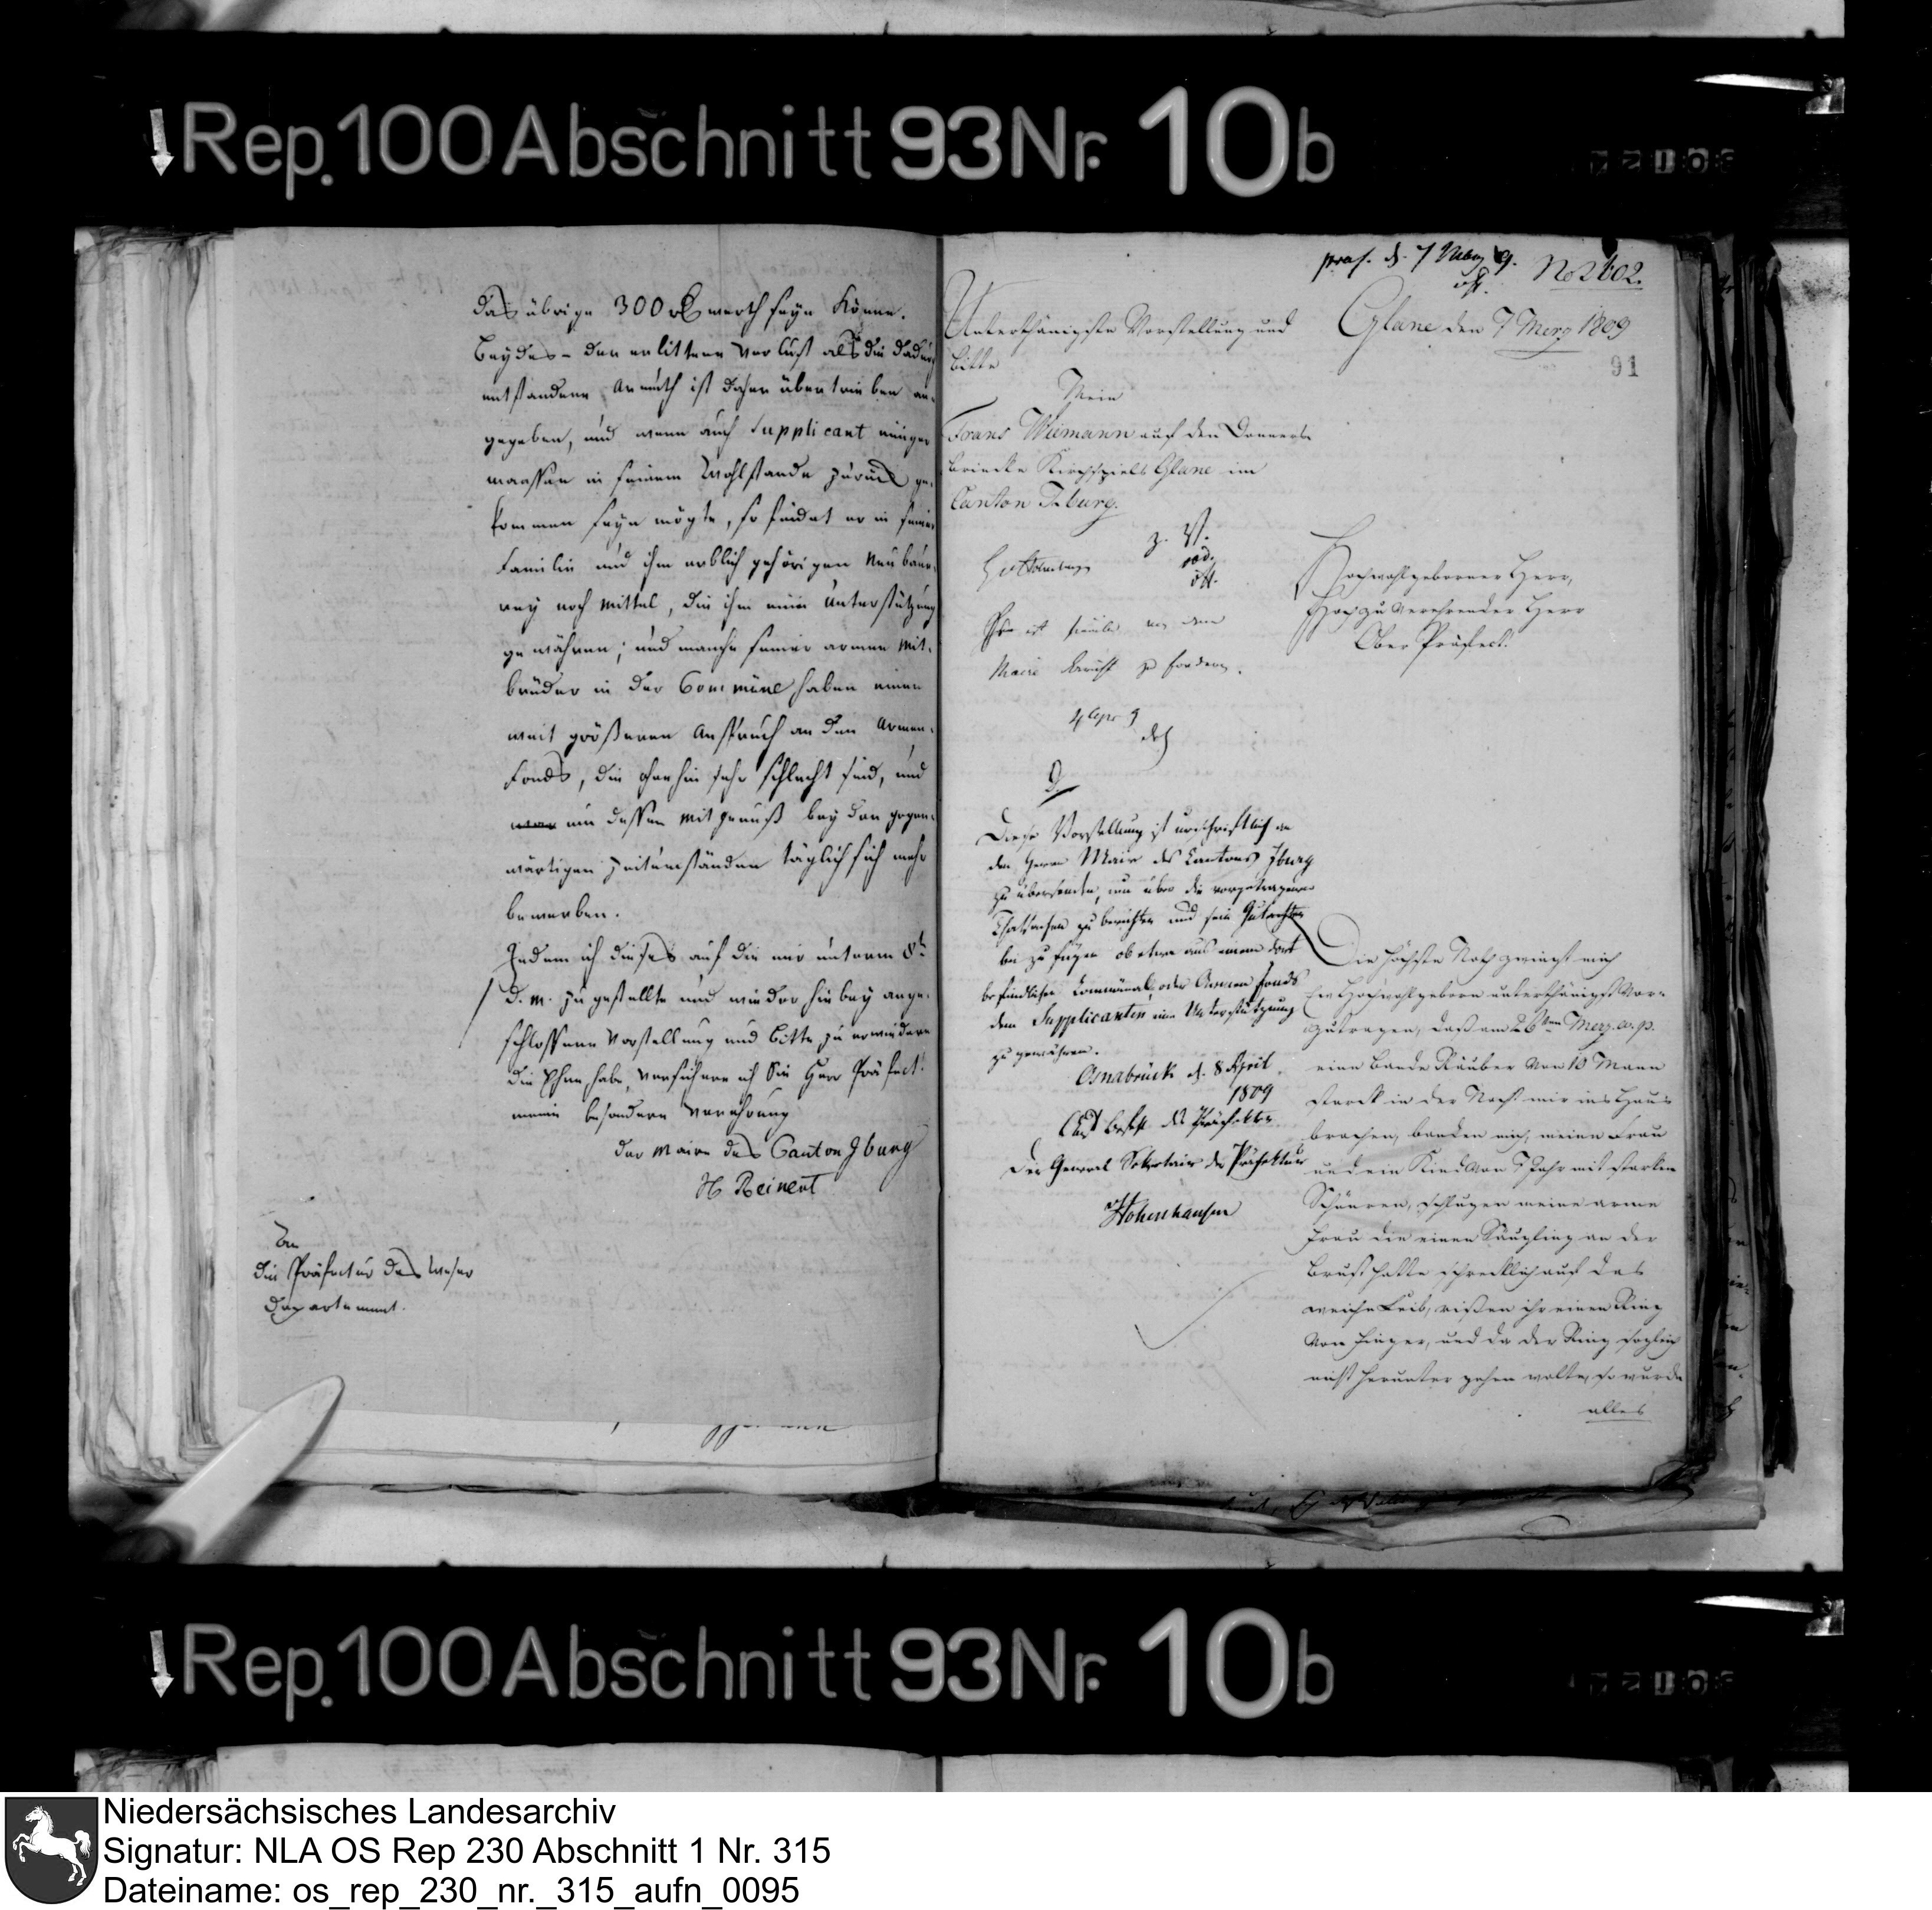 Rep. 100 Abschnitt 93 Nr. 10b
das übrige 300 rt werth seyn könne.
Beydes - der erlittene Verlust als die dadurch
entstandene Armuth ist daher übertrieben an-
gegeben, und wenn auch Supplicant einiger
maassen in seinem Wohlstande zurück ge-
kommen seyn mögte, so findet er in seiner
Familie und ihm erblich gehörigen Neubaue-
rey noch Mittel, die ihm eine Unterstützung
gewähren; und manche seiner armen Mit-
brüder in der Commüne haben einen
weit größeren Anspruch an den Armen-
Fonds, die ohnehin sehr schlecht sind, und
um dessen Mitgenuß bey den gegen-
wärtigen Zeitumständen täglich sich mehr
bewerben.
Indem ich dieses auf die mir unterm 8t
d. m. zugestellte und wieder hiebey ange-
schlossene Vorstellung und Bitte zu erwiedern
die Ehre habe, versichere ich Sie Herr Präfect!
meine besondere Verehrung
der Maire des Canton Iburg
H Reinert
An
die Präfectur des Weser
Departement.
praes. d. 7
No 2602.
Glane den 7 Merz 1809
91
Unterthänigste Vorstellung und
Bitte
Mein
Frans Wiemann auf den Donners
brincke Kirchspiels Glane im
Canton Iburg.
z. V.
ist hierüber von dem
Maire Bericht zu fordern.
4 Apr 9
Hochwohlgeborner Herr,
Hochzuverehrender Herr
Ober Präfect!
D.
Diese Vorstellung ist urschriftlich an
den Herrn Maire des Cantons Iburg
zu übersenden, um über die vorgetragenen
Thatsachen zu berichten und sein Gutachten
bei zu fügen ob etwa aus einem dort
befindlichen Communal, oder Armen Fonds
dem Supplicanten eine Unterstützung
zu gewähren.
Osnabrück d. 8 April
1809
Auf Befehl des Präfekten
Der General Sekretair der Präfektur
Hohenhausen
Die höchste Noth zwingt mich
Ew Hochwohlgeborn unterthänigst vor-
zutragen, daß am 26ten Merz
eine Bande Räuber von 10 Mann
starck in der Nacht mir ins Haus
brachen, banden mich, meine Frau
und ein Kind von 7 Jahr mit starken
Schnüren, schlugen meine arme
Frau die einen Säugling an der
Brust hatte schrecklich auf das
weiche Leib, rißen ihr einen Ring
vom Finger, und da der Ring sogleich
nicht herunter gehen wolte, so wurde
alles
Rep. 100 Abschnitt 93 Nr. 10b
Niedersächsisches Landesarchiv
Signatur: NLA OS Rep 230 Abschnitt 1 Nr. 315
Dateiname: os_rep_230_nr._315_aufn_0095